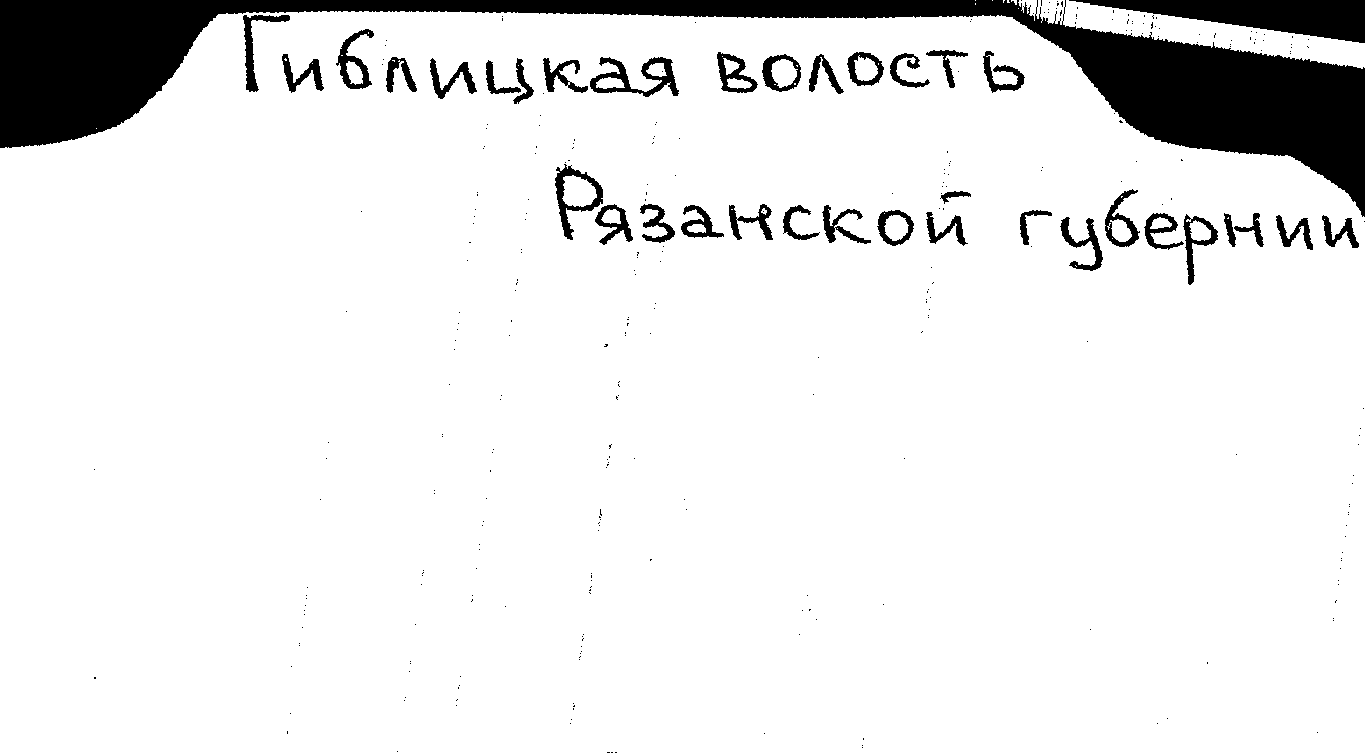 Гиблицкая волость
Рязанской губернии